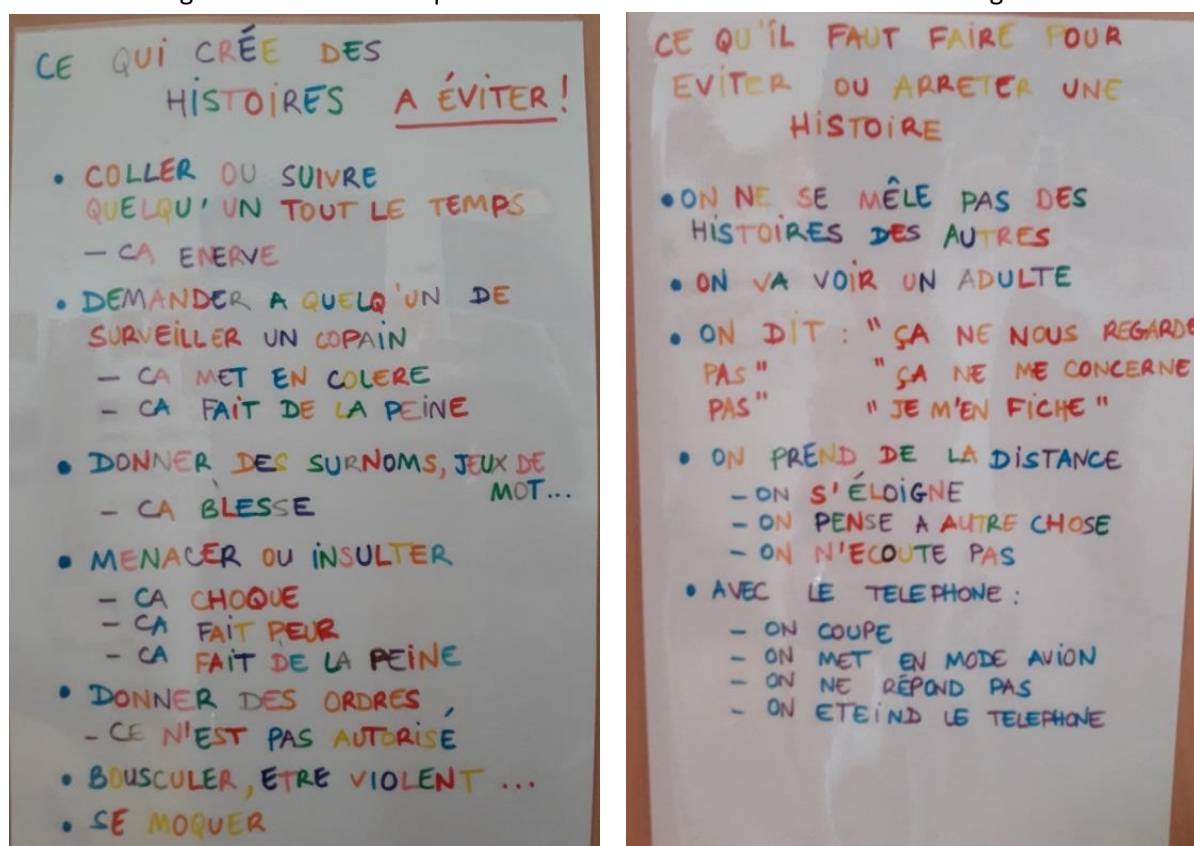 CE QUI CRÉE DES
HISTOIRES A ÉVITER !
• COLLER OU SUIVRE
QUELQU'UN TOUT LE TEMPS
– CA ENERVE
• DEMANDER A QUELQ'UN DE
SURVEILLER UN COPAIN
– CA MET EN COLERE
– CA FAIT DE LA PEINE
• DONNER DES SURNOMS, JEUX DE
MOT...
– CA BLÈSSE
• MENACER OU INSULTER
– CA CHOQUE
– CA FAIT PEUR
– CA FAIT DE LA PEINE
• DONNER DES ORDRES
– CE N'EST PAS AUTORISÉ
• BOUSCULER, ETRE VIOLENT ...
• SE MOQUER
CE QU'IL FAUT FAIRE POUR
EVITER OU ARRETER UNE
HISTOIRE
• ON NE SE MÊLE PAS DES
HISTOIRES DES AUTRES
• ON VA VOIR UN ADULTE
• ON DIT : "ÇA NE NOUS REGARDE
PAS" "ÇA NE ME CONCERNE
PAS" "JE M'EN FICHE"
• ON PREND DE LA DISTANCE
– ON S'ÉLOIGNE
– ON PENSE A AUTRE CHOSE
– ON N'ECOUTE PAS
• AVEC LE TELEPHONE :
– ON COUPE
– ON MET EN MODE AVION
– ON NE RÉPOND PAS
– ON ETEIND LE TELEPHONE